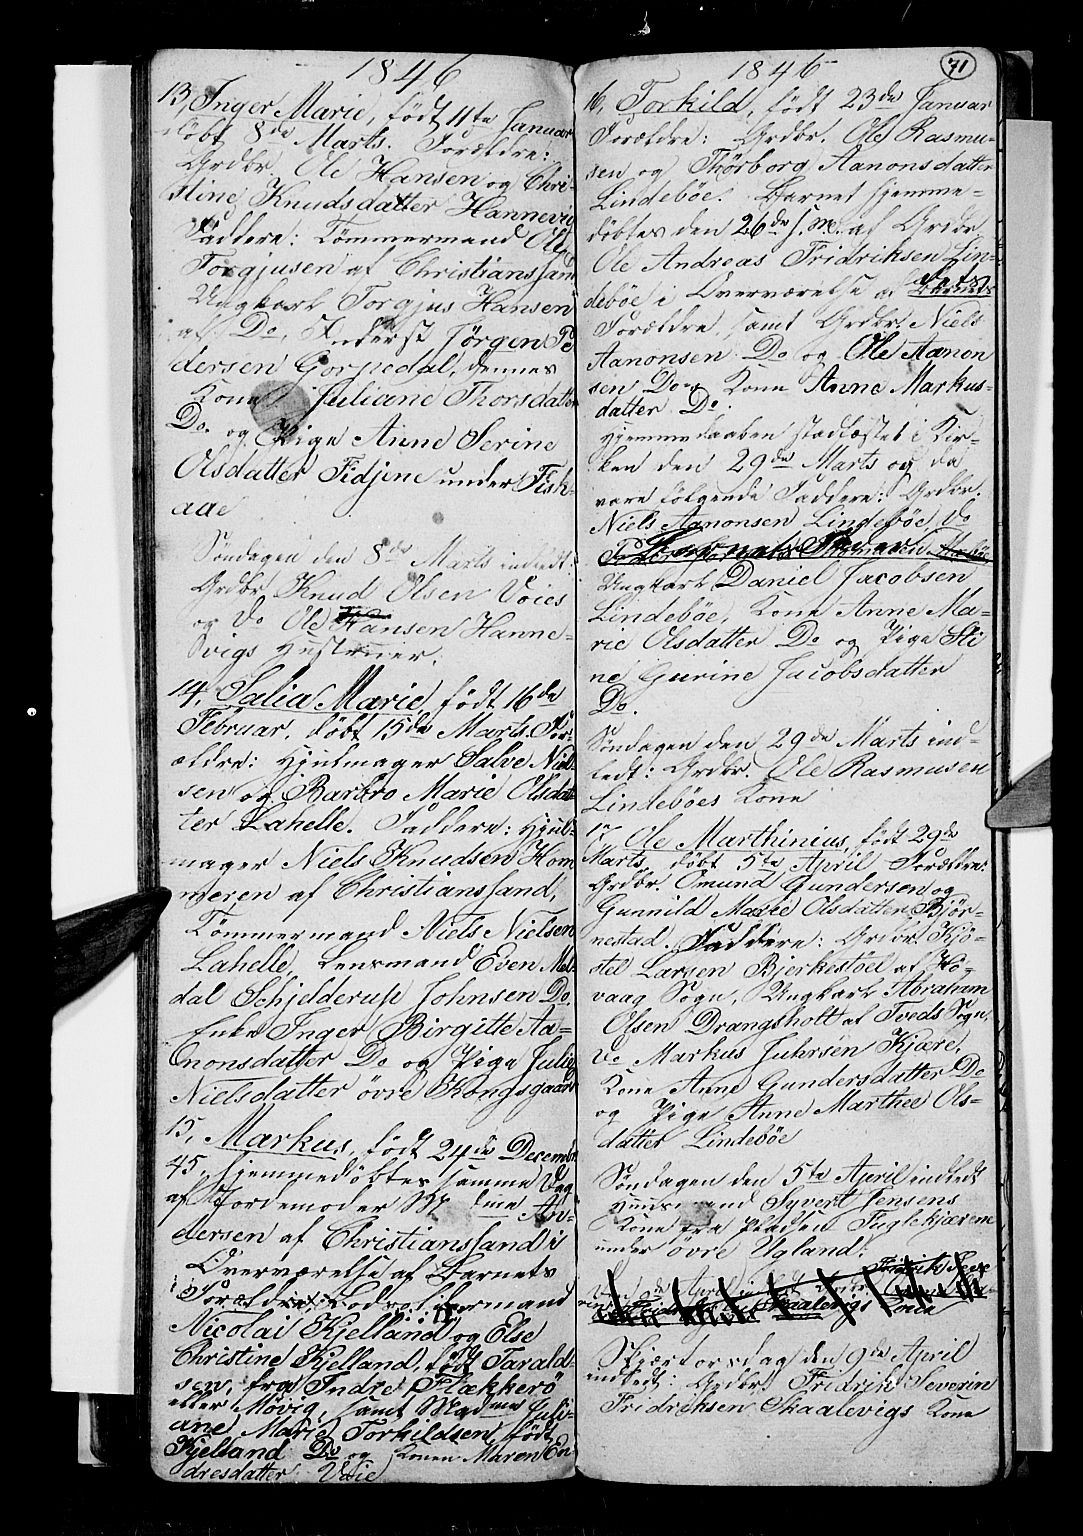 1846
13, Inger Marie, født 11te Januar
døbt 8de Marts. Forældre:
Grdbr. Ole Hansen og Chri-
stine Knudsdatter Hannevig
Faddere: Tömmermand Ole
Torgjusen af Christianssand
Ungkarl Torgjus Hansen
af Do, Jörgen Pe
dersen Gorpedal, dennes
Kone Juliane Thorsdatter
Do. og Pige Anne Serine
Olsdatter Fidjene under Fisk-
aae
Søndagen den 8de Marts indledt:
Grdbr. Knud Olsen Voies
og Do Ole Hansen Hanne-
svigs Hustruer.
14, Salia Marie, født 16de
Februar, døbt 15de Marts. For-
ældre: Hjulmager Salve Niel-
sen og Barbro Marie Olsdat-
ter Lahelle. Faddere: Hjul-
mager Niels Knudsen Hom
meren af Christianssand,
Tömmermand Niels Nielsen
Lahelle, Lensmand Even Mel-
dal Schjelderup Johnsen Do.
Enke Inger Birgitte Aa-
nonsdatter Do og Pige Julie
Nielsdatter övre Kongsgaard
15, Markus, født 24de Decembr.
45, hjemmedöbtes samme Dag
af Jordemoder Mdme An-
dersen af Christianssand i
Overværelse af Barnets
Forældre: Lods og Tömmermand
Nicolai Kjelland og Else
Christine Kjelland, født Tarald-
sen, fra Indre Flækkerö
eller Møvig, samt Madme Juli-
ane Marie Torkildsen, født
Kjelland Do og Konen Maren En-
dresdatter Voie
1846
71
16, Torkild, født 23de Januar
Forældre: Grdbr. Ole Rasmu-
sen og Thörborg Aanonsdatter
Lindebøe. Barnet hjemme-
døbtes den 26de s. M. af Grdbr.
Ole Andreas Fridriksen Lin-
debøe i Overværelse af dets
Forældre, samt Grdbr. Niels
Aanonsen Do og Ole Aanon
sen Do og Kone Anne Markus-
datter Do.
Hjemmedaaben stadfæstet i Kir-
ken den 29de Marts og da
vare følgende Faddere: Grdbr.
Niels Aanonsen Lindebøe, Do
Ungkarl Daniel Jacobsen
Lindebøe, Kone Anne Ma-
rie Olsdatter Do og Pige Sti
ne Gurine Jacobsdatter
Do.
Søndagen den 29de Marts ind-
ledt: Grdbr. Ole Rasmusen
Lindebøes Kone
17, Ole Marthinius, født 29de
Marts, døbt 5te April Forældre:
Grdbr. Omund Gundersen og
Gunnild Marie Olsdatter Björ-
nestad. Faddere: Grdbr. Kjö-
stel Larsen Bjerkestøel af Hø-
vaag Sogn, Ungkarl Abraham
Olsen Drangsholt af Tveds Sogn,
Do Markus Juhrsen Kjære,
Kone Anne Gundersdatter Do
og Pige Anne Marthee Ols-
datter Lindebøe
Søndagen den 5te April indledt
Huusmand Syvert Jensens
Kone fra Pladsen Fuglekjærene
under övre Ugland.
Skjærtorsdag den 9de April
indledt: Grdbr. Fridrik Severin
Fridriksen Skaalevigs Kone